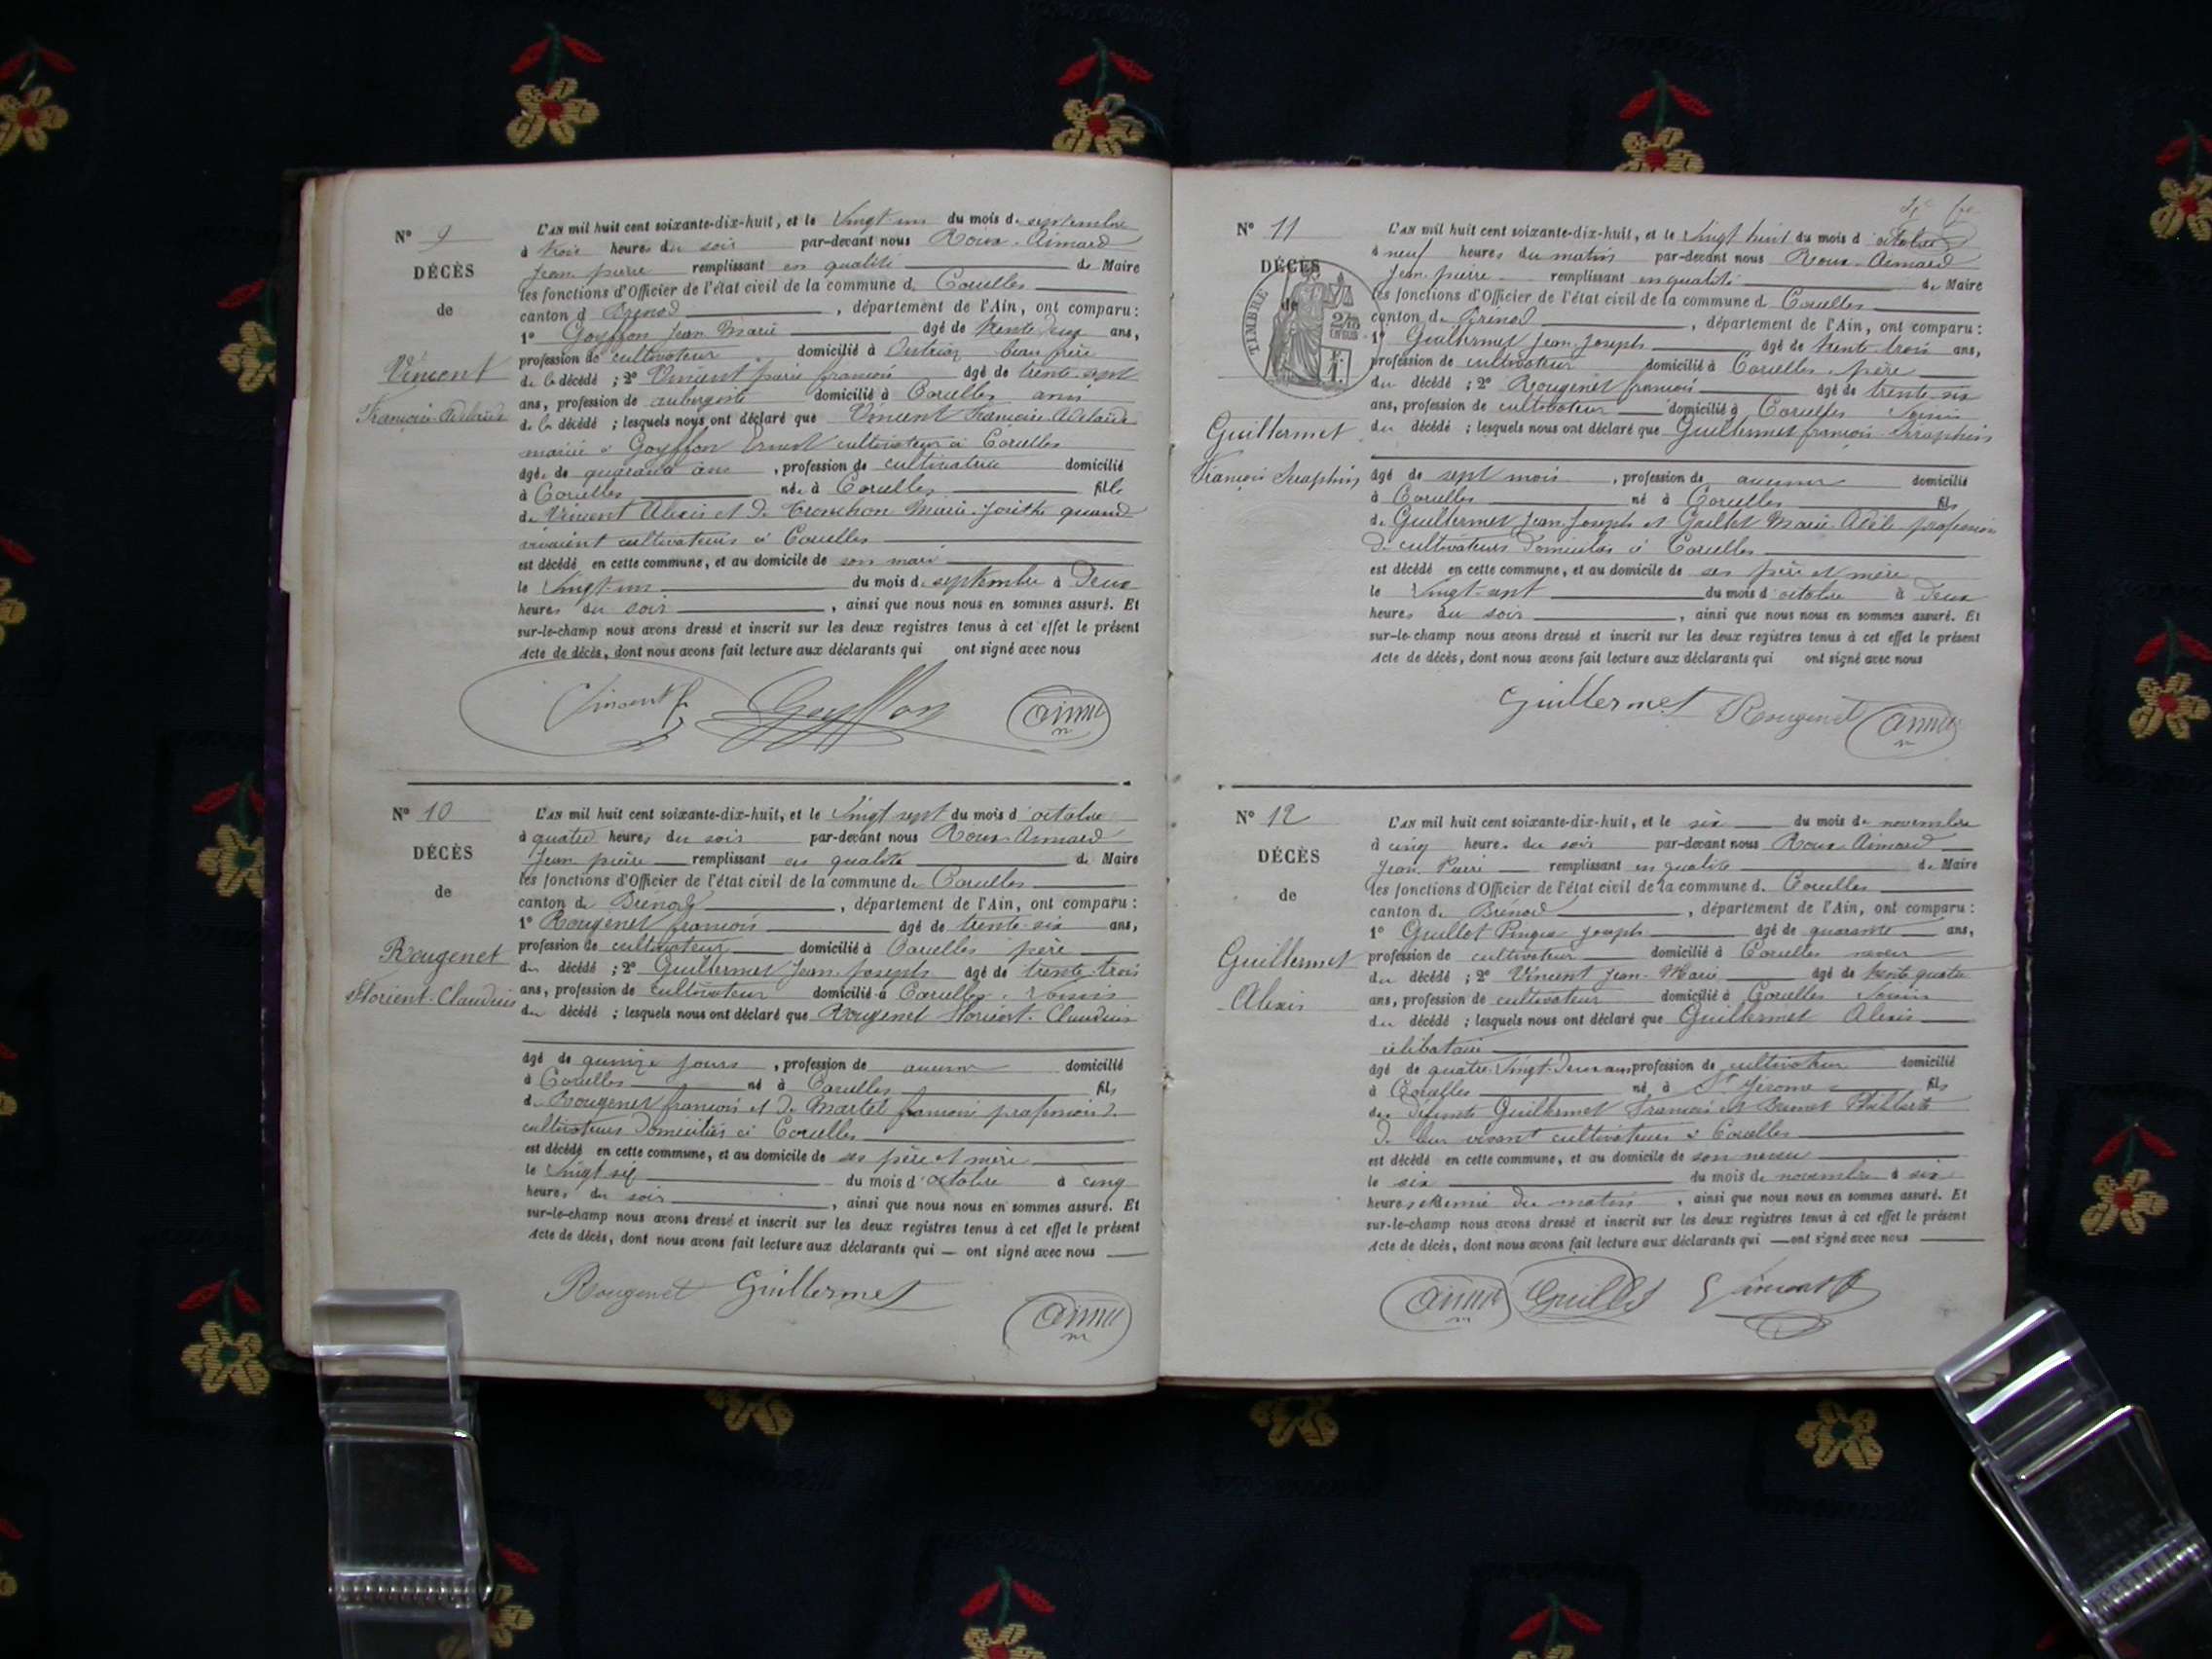 N° 9
DÉCÈS
de
Vincent
Françoise Adelaïde
L'AN mil huit cent soixante-dix-huit, et le Vingt-un du mois de septembre
à trois heures du soir par-devant nous Roux-Aimard
Jean pierre remplissant en qualité de Maire
les fonctions d'Officier de l'état civil de la commune de Corcelles
canton de Brénod, département de l'Ain, ont comparu :
1° Goyffon Jean Marie âgé de trente deux ans,
profession de cultivateur domicilié à beau frère
de la décédé ; 2° Vincent pierre françois âgé de trente-sept
ans, profession de aubergiste domicilié à Corcelles amis
de la décédé ; lesquels nous ont déclaré que Vincent françoise Adelaïde
mariée à Goyffon Ernest cultivateur à Corcelles
âgé. de quarante ans, profession de cultivatrice domicilié
à Corcelles née à Corcelles fille
de Vincent Alexis et de Tronchon Marie-Josèthe quand
vivaient cultivateurs à Corcelles
est décédé en cette commune, et au domicile de son mari
le Vingt-un du mois de septembre à Deux
heures du soir, ainsi que nous nous en sommes assuré. Et
sur-le-champ nous avons dressé et inscrit sur les deux registres tenus à cet effet le présent
Acte de décès, dont nous avons fait lecture aux déclarants qui ont signé avec nous
Vincent f Goyffon Aimé
N° 10
DÉCÈS
de
Rougenet
Florient-Claudius
L'AN mil huit cent soixante-dix-huit, et le Vingt sept du mois d'octobre
à quatre heures du soir par-devant nous Roux-Aimard
Jean pierre remplissant en qualité de Maire
les fonctions d'Officier de l'état civil de la commune de Corcelles
canton de Brénod, département de l'Ain, ont comparu :
1° Rougenet françois âgé de trente-six ans,
profession de cultivateur domicilié à Corcelles père
du décédé ; 2° Guillermet Jean Joseph âgé de trente-trois
ans, profession de cultivateur domicilié à Corcelles, voisin
du décédé ; lesquels nous ont déclaré que Rougenet Florient-Claudius
âgé de quinze jours, profession de aucune domicilié
à Corcelles né à Corcelles fils
de Rougenet françois et de Martel profession de
cultivateurs domiciliés à Corcelles
est décédé en cette commune, et au domicile de ses père et mère
le Vingt six du mois d'octobre à cinq
heures du soir, ainsi que nous nous en sommes assuré. Et
sur-le-champ nous avons dressé et inscrit sur les deux registres tenus à cet effet le présent
Acte de décès, dont nous avons fait lecture aux déclarants qui — ont signé avec nous
Rougenet Guillermet Aimé
N° 11
DÉCÈS
de
TIMBRE
Guillermet
François Séraphin
L'AN mil huit cent soixante-dix-huit, et le Vingt huit du mois d'octobre
à neuf heures du matin par-devant nous Roux-Aimard
Jean pierre remplissant en qualité de Maire
les fonctions d'Officier de l'état civil de la commune de Corcelles
canton de Brénod, département de l'Ain, ont comparu :
1° Guillermet Jean Joseph âgé de trente-trois ans,
profession de cultivateur domicilié à Corcelles, père
du décédé ; 2° Rougenet françois âgé de trente-six
ans, profession de cultivateur domicilié à Corcelles voisin
du décédé ; lesquels nous ont déclaré que Guillermet françois-Séraphin
âgé de sept mois, profession de aucune domicilié
à Corcelles né à Corcelles fils
de Guillermet Jean Joseph et Guillot Marie Adèle profession
de cultivateurs domiciliés à Corcelles
est décédé en cette commune, et au domicile de ses père et mère
le Vingt-sept du mois d'octobre à Deux
heures du soir, ainsi que nous nous en sommes assuré. Et
sur-le-champ nous avons dressé et inscrit sur les deux registres tenus à cet effet le présent
Acte de décès, dont nous avons fait lecture aux déclarants qui ont signé avec nous
Guillermet Rougenet Aimé
N° 12
DÉCÈS
de
Guillermet
Alexis
L'AN mil huit cent soixante-dix-huit, et le six du mois de novembre
à cinq heures du soir par-devant nous Roux-Aimard
Jean Pierre remplissant en qualité de Maire
les fonctions d'Officier de l'état civil de la commune de Corcelles
canton de Brénod, département de l'Ain, ont comparu :
1° Guillot Joseph âgé de quarante ans,
profession de cultivateur domicilié à Corcelles neveu
du décédé ; 2° Vincent Jean-Marie âgé de trente quatre
ans, profession de cultivateur domicilié à Corcelles voisin
du décédé ; lesquels nous ont déclaré que Guillermet Alexis
célibataire
âgé de quatre-Vingt-Deux ans profession de cultivateur domicilié
à Corcelles né à St Jérome fils
des défunts Guillermet François et Brunet
de leur vivant cultivateurs à Corcelles
est décédé en cette commune, et au domicile de son neveu
le six du mois de novembre à six
heures et demie du matin, ainsi que nous nous en sommes assuré. Et
sur-le-champ nous avons dressé et inscrit sur les deux registres tenus à cet effet le présent
Acte de décès, dont nous avons fait lecture aux déclarants qui — ont signé avec nous
Aimé Guillot Vincent